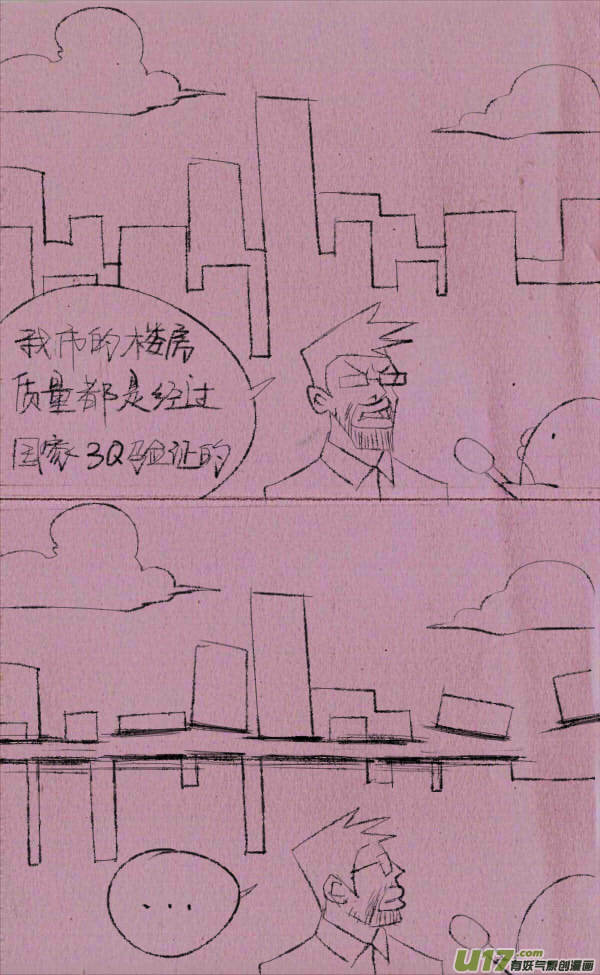 我市的楼房
质量都是经过
国家3Q验证的
...
U17.com
有妖气原创漫画